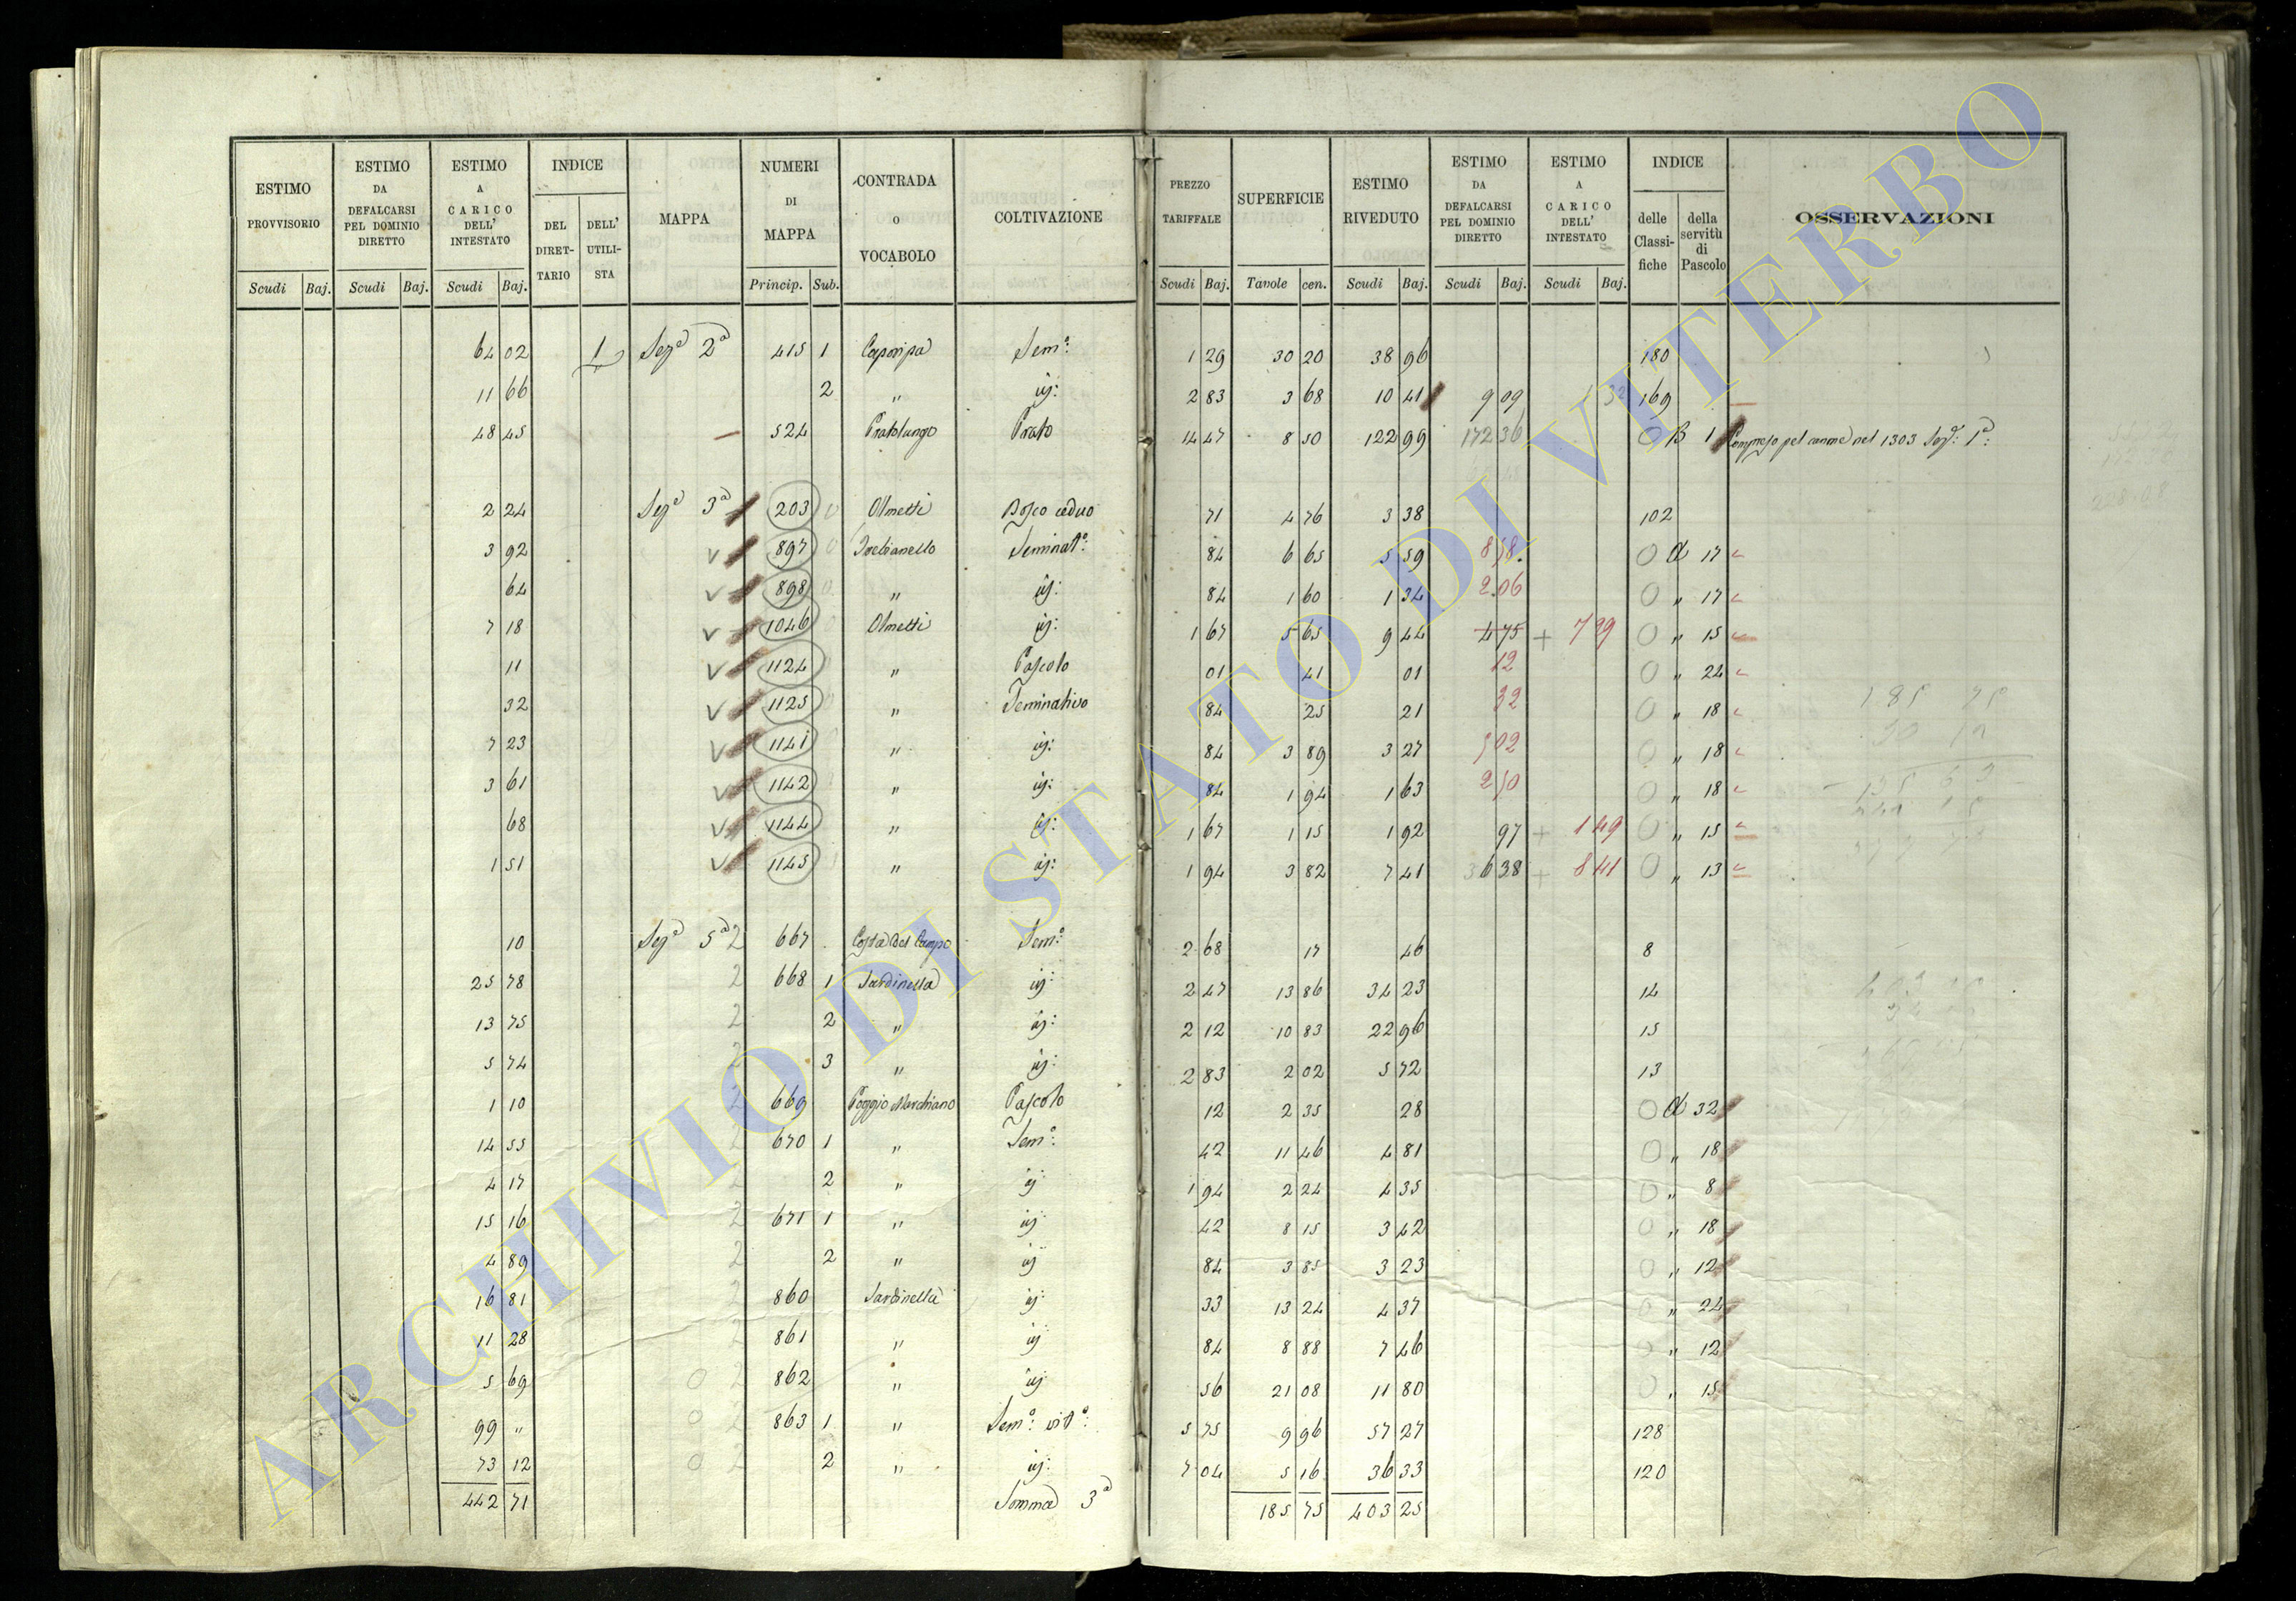 ESTIMO PROVVISORIO Scudi Baj.
ESTIMO DA DEFALCARSI PEL DOMINIO DIRETTO Scudi Baj.
ESTIMO A CARICO DELL' INTESTATO Scudi Baj.
INDICE DEL DIRETTARIO DELL' UTILISTA
MAPPA
NUMERI DI MAPPA Princip. Sub.
CONTRADA O VOCABOLO
COLTIVAZIONE
PREZZO TARIFFALE Scudi Baj.
SUPERFICIE Tavole cen.
ESTIMO RIVEDUTO Scudi Baj.
ESTIMO DA DEFALCARSI PEL DOMINIO DIRETTO Scudi Baj.
ESTIMO A CARICO DELL' INTESTATO Scudi Baj.
INDICE delle Classifiche della servitù di Pascolo
OSSERVAZIONI
64 02 1 Sezª 2ª 415 1 Sem.º 1 29 30 20 38 96 180
11 66 2 " id: 2 83 3 68 10 41 9 09 1 32 169
48 45 524 Pratolungo Prato 14 47 8 50 122 99 172 36 0 B 1 Compreso pel canone nel 1303 Sezª: 1ª:
2 24 Sezª 3ª 203 0 Olmetti Bosco ceduo 71 4 76 3 38 102
3 92 V 897 0 Seminatº: 84 6 65 5 59 8 58. 0 a 17
64 V 898 0 " id: 84 1 60 1 34 2 06 0 " 17
7 18 V 1046 Olmetti id: 1 67 5 65 9 44 4 75 + 7 39 0 " 15
11 V 1124 " Pascolo 01 41 01 12 0 " 24
32 V 1125 " Seminativo 84 25 21 32 0 " 18
7 23 V 1141 " id: 84 3 89 3 27 5 02 0 " 18
3 61 V 1142 " id: 84 1 94 1 63 2 50 0 " 18
68 V 1144 " id: 1 67 1 15 1 92 97 + 1 49 0 " 15
1 51 V 1145 " id: 1 94 3 82 7 41 36 38 + 8 41 0 " 13
10 Sezª 5ª 2 667 Costa del Campo Sem.º 2 68 17 46 8
25 78 2 668 1 Sardinella id: 2 47 13 86 34 23 14
13 75 2 2 " id: 2 12 10 83 22 96 15
5 74 2 3 " id: 2 83 2 02 5 72 13
1 10 2 669 Poggio Marchiano Pascolo 12 2 35 28 0 a 32
14 55 2 670 1 " Sem.º 42 11 46 4 81 0 " 18
4 17 2 2 " id 1 94 2 24 4 35 0 " 8
15 16 2 671 1 " id 42 8 15 3 42 0 " 18
4 89 2 2 " id 84 3 85 3 23 0 " 12
16 81 2 860 Sardinella id: 33 13 24 4 37 0 " 24
11 28 2 861 " id 84 8 88 7 46 0 " 12
5 69 0 2 862 " id 56 21 08 11 80 0 " 15
99 " 0 2 863 1 " Sem.º vitº: 5 75 9 96 57 27 128
73 12 0 2 2 " id: 7 04 5 16 36 33 120
442 71 Somma 3ª 185 75 403 25
ARCHIVIO DI STATO DI VITERBO